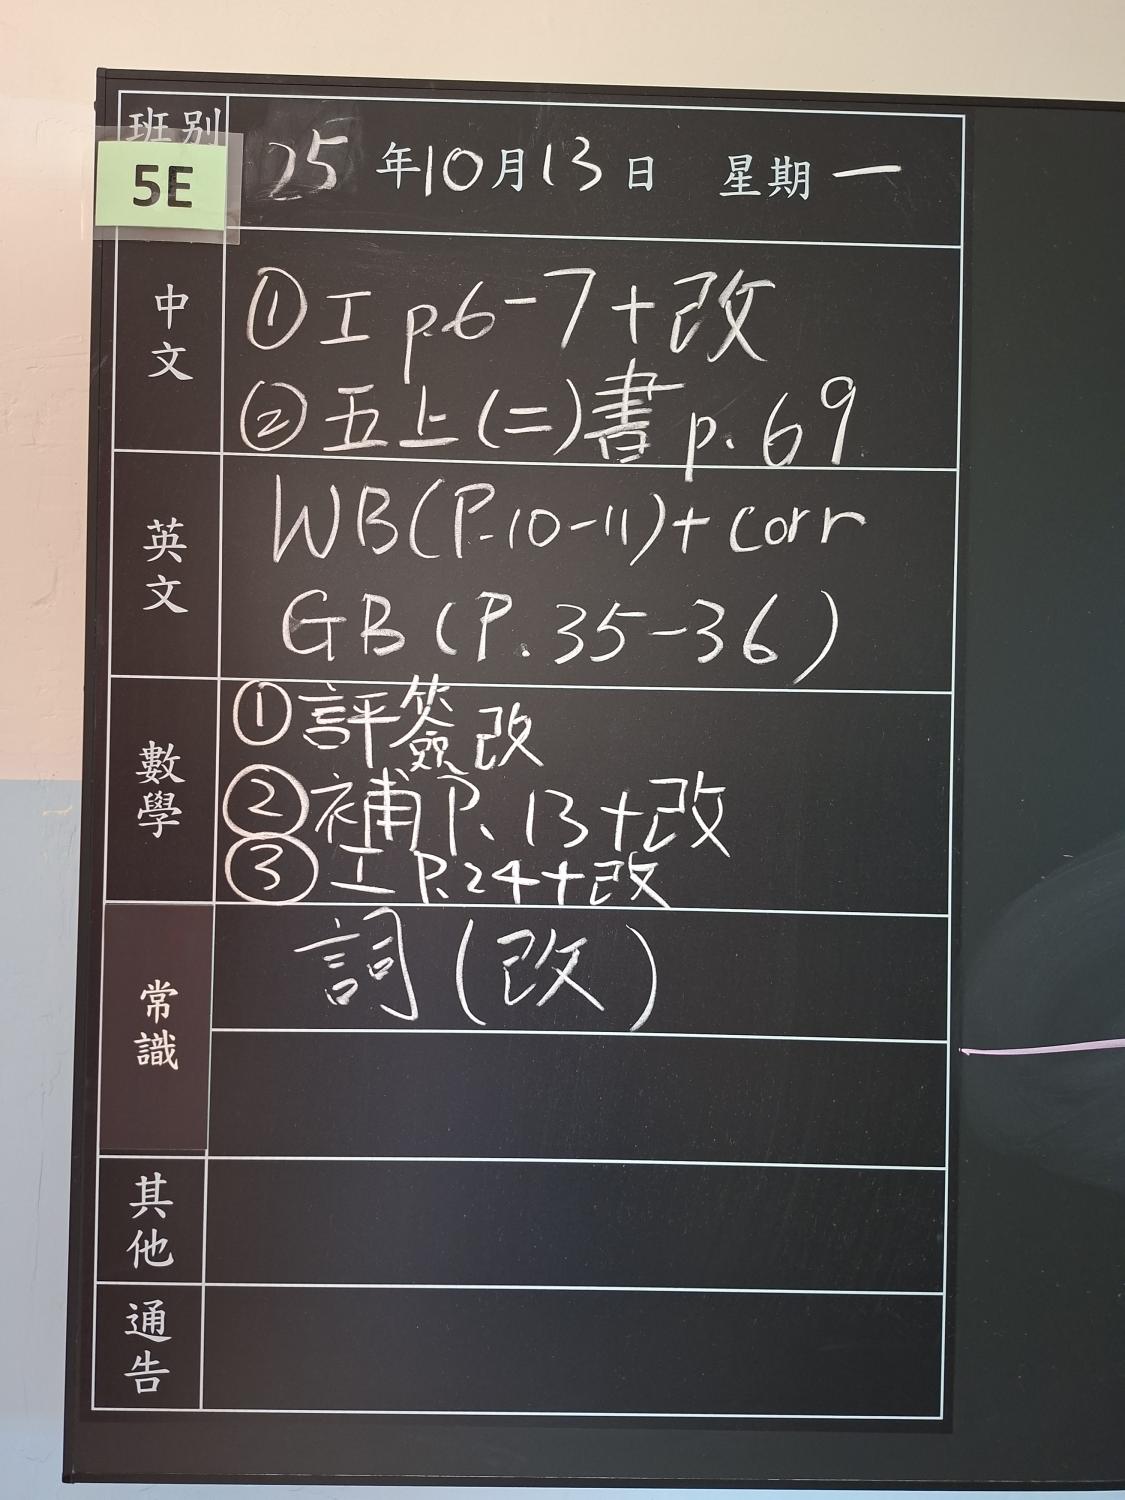 班別
5E
25年10月13日 星期一
中文
①工 p.6-7+改
②五上(二)書p.69
英文
WB(P.10-11)+corr
GB(P.35-36)
數學
①評簽改
②補P.13+改
③工P.24+改
常識
詞(改)
其他
通告